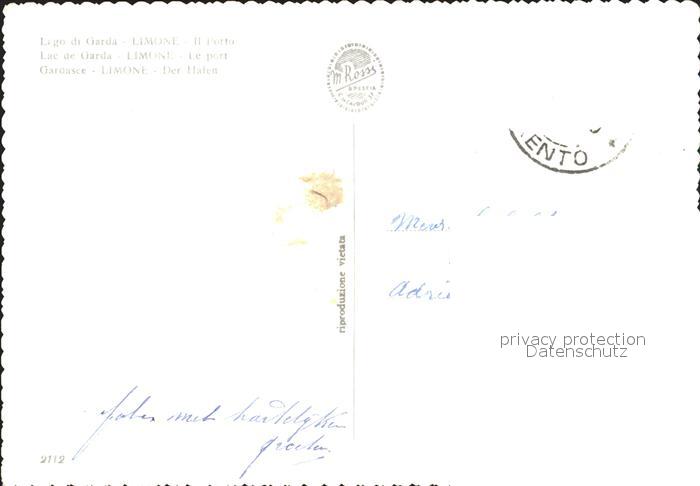 Lago di Garda - LIMONE - Il Porto
Lac de Garda - LIMONE - Le port
Gardasee - LIMONE - Der Hafen
M. Rossi
BRESCIA
ENTO
riproduzione vietata
privacy protection
Datenschutz
met hartelyken
groeten.
2112